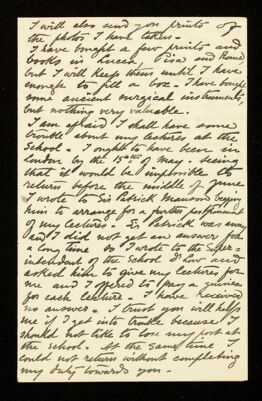 I will also send you prints of
the photos I have taken.
I have bought a few prints and
books in Lucca, Pisa and Rome,
but I will keep them until I have
enough to fill a box. I have bought
some ancient surgical instruments,
but nothing very valuable.
I am afraid I shall have some
trouble about my lectures at the
School. I ought to have been in
London by the 15th of May. Seeing
that it would be impossible to
return before the middle of June
I wrote to Sir Patrick Manson begging
him to arrange for a further postponement
of my lectures. Sir Patrick was away
and I did not get an answer for
a long time. So I wrote to the Super-
intendent of the School & Law and
asked him to give my lectures for
me and I offered to pay a guinea
for each lecture. I have received
no answer. I trust you will help
me if I get into trouble because I
should not like to lose my post at
the School. At the same time I
could not return without completing
my duty towards you.